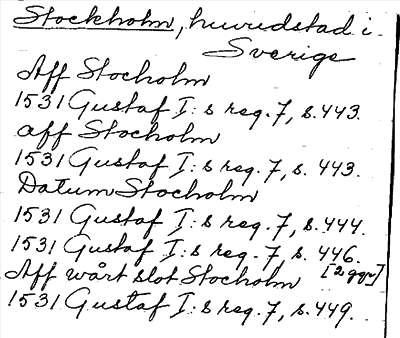 Stockholm, huvudstad i
Sverige
Aff Stocholm
1531 Gustaf I:s reg. 7, s. 443.
aff Stocholm
1531 Gustaf I:s reg. 7, s. 443.
Datum Stocholm
1531 Gustaf I:s reg. 7, s. 444.
1531 Gustaf I:s reg. 7, s. 446.
[2 ggr]
Aff wårt slot Stocholm
1531 Gustaf I:s reg. 7, s. 449.